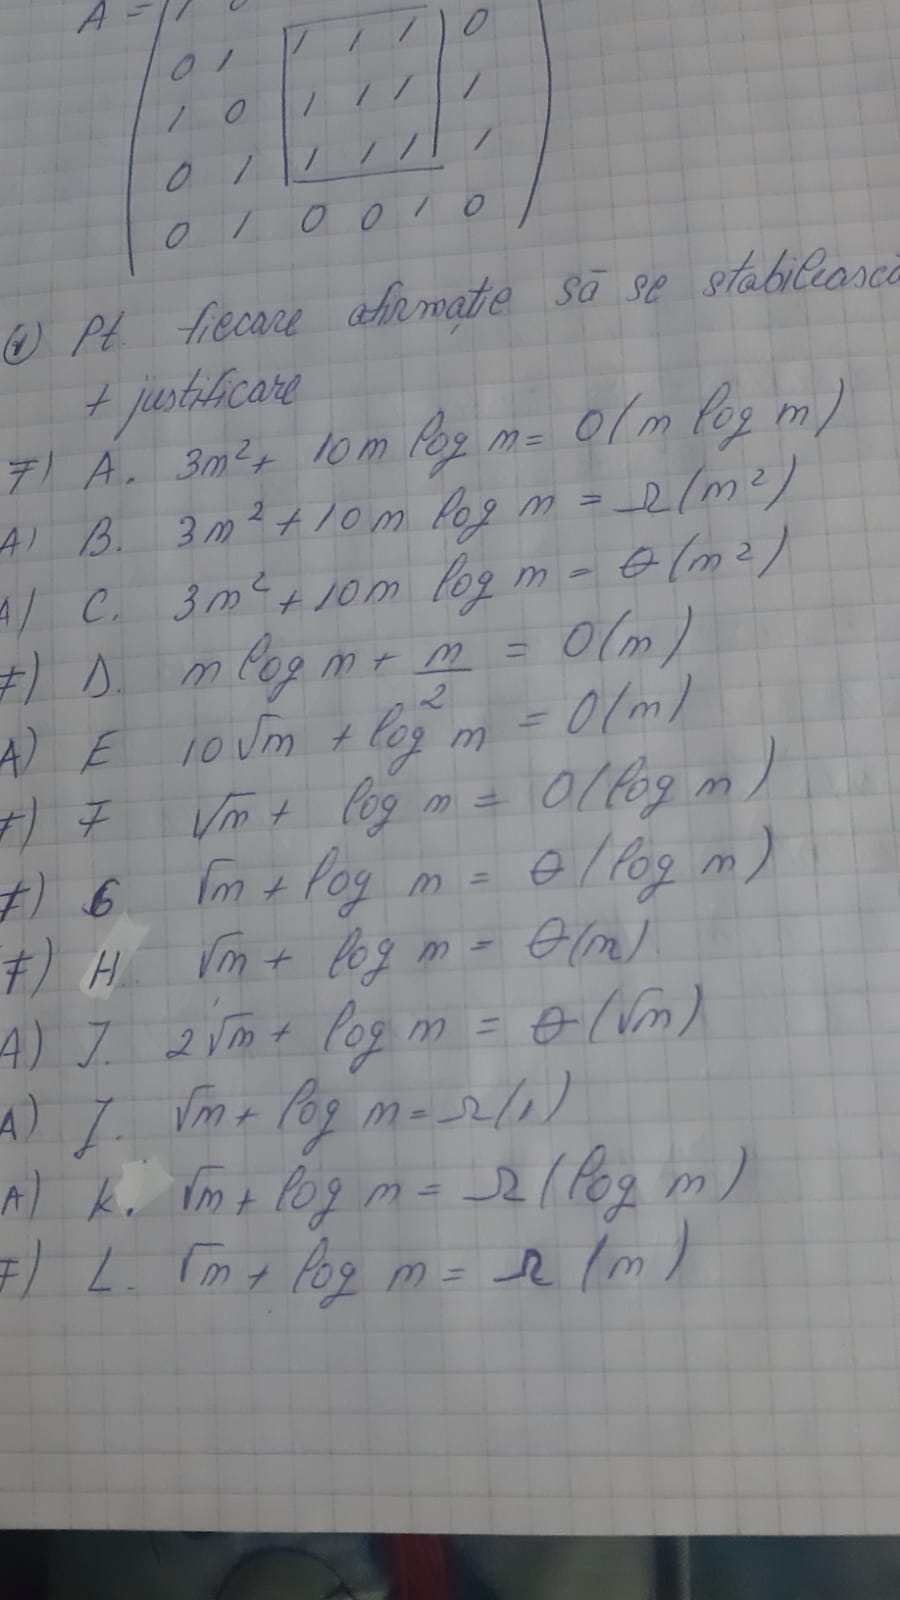 A = 1 0
0 1 1 1 1 0
1 0 1 1 1 1
0 1 1 1 1 1
0 1 0 0 1 0
Pt. fiecare afirmație să se stabilească
+ justificare
F) A. 3m² + 10m log m = O(m log m)
A) B. 3m² + 10m log m = Ω(m²)
A) C. 3m² + 10m log m = θ(m²)
F) D. m log m + m/2 = O(m)
A) E 10√m + log m = O(m)
F) F √m + log m = O(log m)
F) G √m + log m = θ(log m)
F) H. √m + log m = θ(m)
A) I. 2√m + log m = θ(√m)
A) J. √m + log m = Ω(1)
A) K. √m + log m = Ω(log m)
F) L. √m + log m = Ω(m)